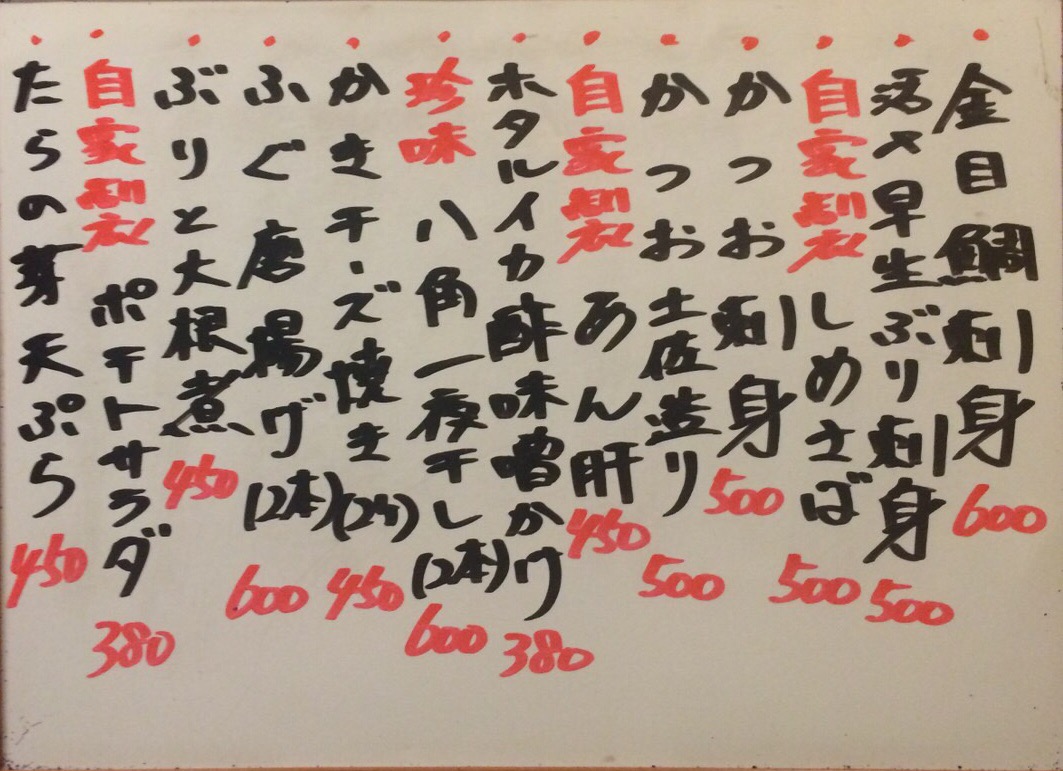 ・金目鯛刺身 600
・活〆早生ぶり刺身 500
・自家製しめさば 500
・かつお刺身 500
・かつお土佐造り 500
・自家製 あん肝 450
・ホタルイカ酢味噌かけ 380
・珍味 八角一夜干し(2本) 600
・かきチーズ焼き(2ケ) 450
・ふぐ唐揚げ(2本) 600
・ぶりと大根煮 450
・自家製 ポテトサラダ 380
・たらの芽天ぷら 450